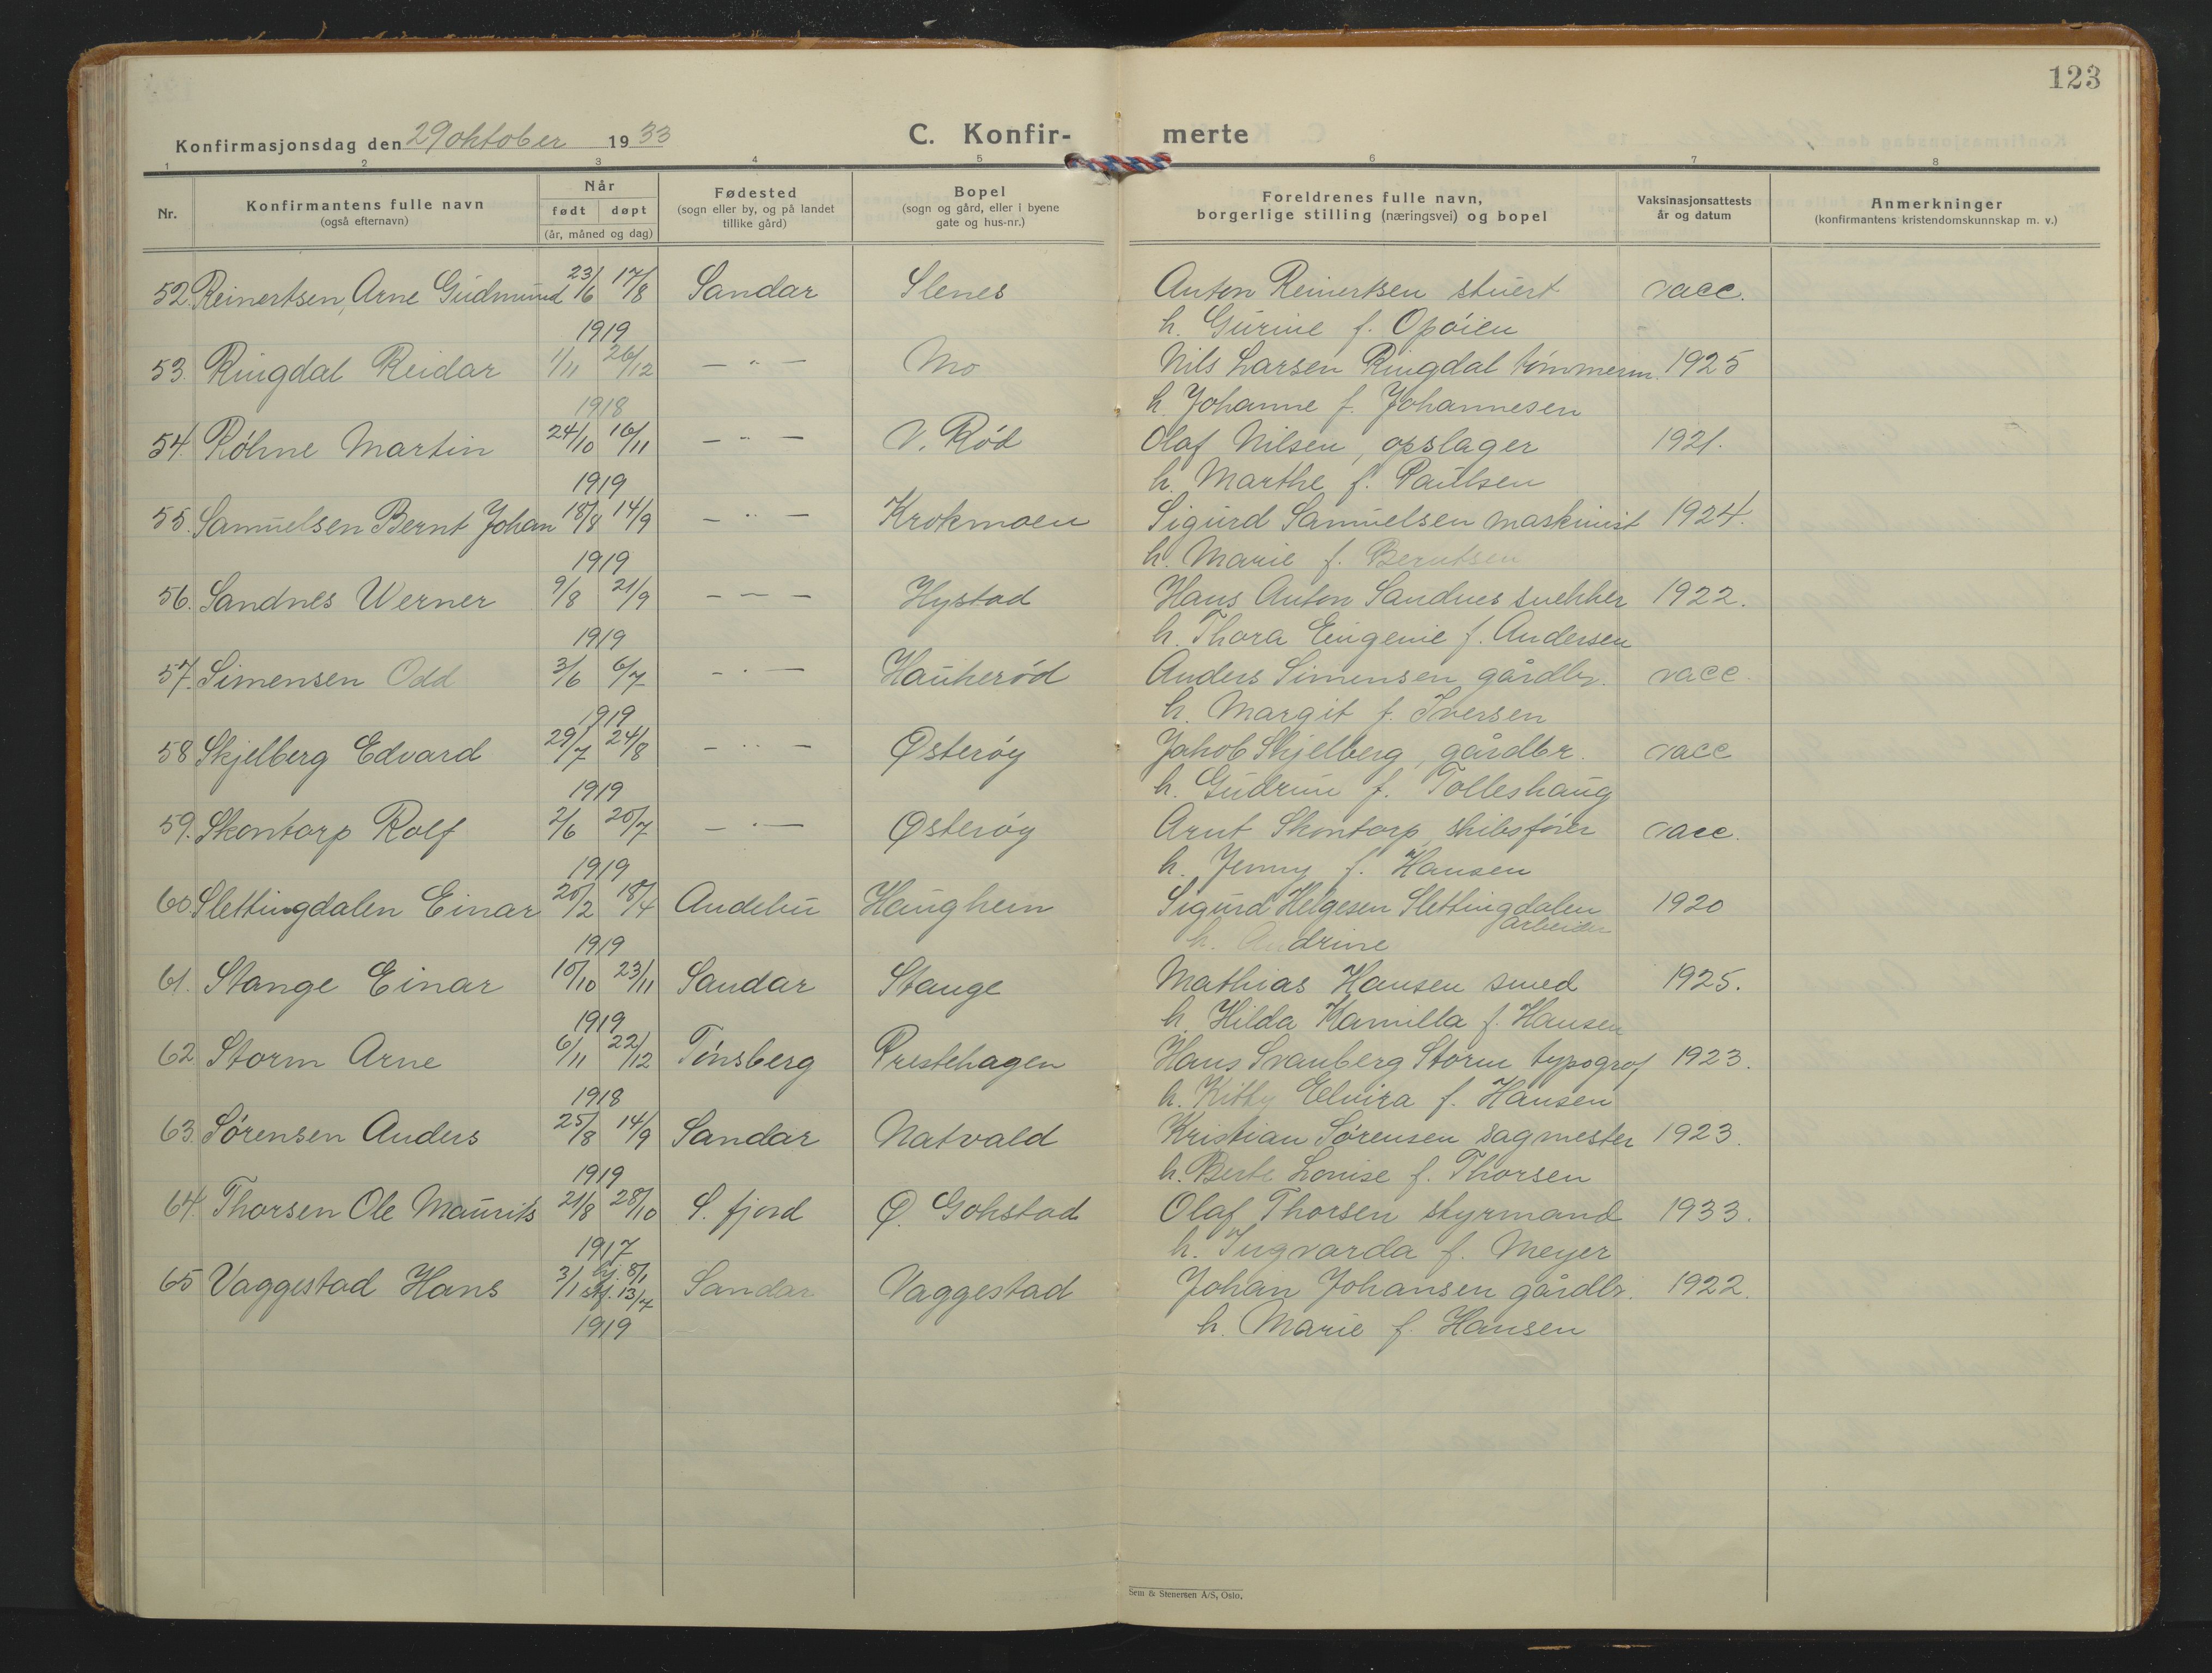 123
Konfirmasjonsdag den 29 oktober 1933
C. Konfir- merte
1 2 3 4 5 6 7 8
Nr.
Konfirmantens fulle navn
(også efternavn)
Når
født døpt
(år, måned og dag)
Fødested
(sogn eller by, og på landet
tillike gård)
Bopel
(sogn og gård, eller i byene
gate og hus-nr.)
Foreldrenes fulle navn,
borgerlige stilling (næringsvei) og bopel
Vaksinasjonsattests
år og datum
Anmerkninger
(konfirmantens kristendomskunnskap m. v.)
52. Reinertsen, Arne Gudmund 23/6 17/8 Sandar Slenes Anton Reinertsen stuert vacc.
1919 h. Gurine f. Opøien
53. Ringdal Reidar 1/11 26/12 — " — Mo Nils Larsen Ringdal tømmerm. 1925
1918 h. Johanne f. Johannesen
54. Røhne Martin 24/10 16/11 — " — V. Rød Olaf Nilsen, opslager 1921.
1919 h. Marthe f. Paulsen
55. Samuelsen Bernt Johan 18/8 14/9 — " — Krokmoen Sigurd Samuelsen maskinist 1924.
1919 h. Marie f. Berntsen
56. Sandnes Werner 9/8 21/9 — — — Hystad Hans Anton Sandnes snekker 1922.
1919 h. Thora Eugenie f. Andersen
57. Simensen Odd 3/6 6/7 — " — Haukerød Anders Simensen gårdbr. vacc.
1919 h. Margit f. Iversen
58 Skjelberg Edvard 29/7 24/8 — " — Østerøy Jakob Skjelberg, gårdbr. vacc
1919 h. Gudrun f. Tolleshaug
59. Skontorp Rolf 2/6 20/7 — " — Østerøy Arnt Skontorp skibsfører vacc.
1919 h. Jenny f. Hansen
60 Slettingdalen Einar 20/2 18/4 Andebu Haughem Sigurd Helgesen Slettingdalen 1920
arbeider
1919 h. Andrine
61. Stange Einar 10/10 23/11 Sandar Stange Mathias Hansen smed 1925.
1919 h. Hilda Kamilla f. Hansen
62 Storm Arne 6/11 22/12 Tønsberg Prestehagen Hans Svanberg Storm typograf 1923.
1918 h. Kitty Elvira f. Hansen
63. Sørensen Anders 25/8 14/9 Sandar Natvald Kristian Sørensen sagmester 1923.
1919 h. Berte Louise f. Thorsen
64. Thorsen Ole Maurits 21/8 28/10 S. fjord Ø. Gokstad Olaf Thorsen styrmand 1933.
1917 h. Ingvarda f. Meyer
65 Vaggestad Hans 3/1 hj. 8/1 stf. 13/7 Sandar Vaggestad Johan Johansen gårdbr. 1922.
1919 h. Marie f. Hansen
Sem & Stenersen A/S, Oslo.